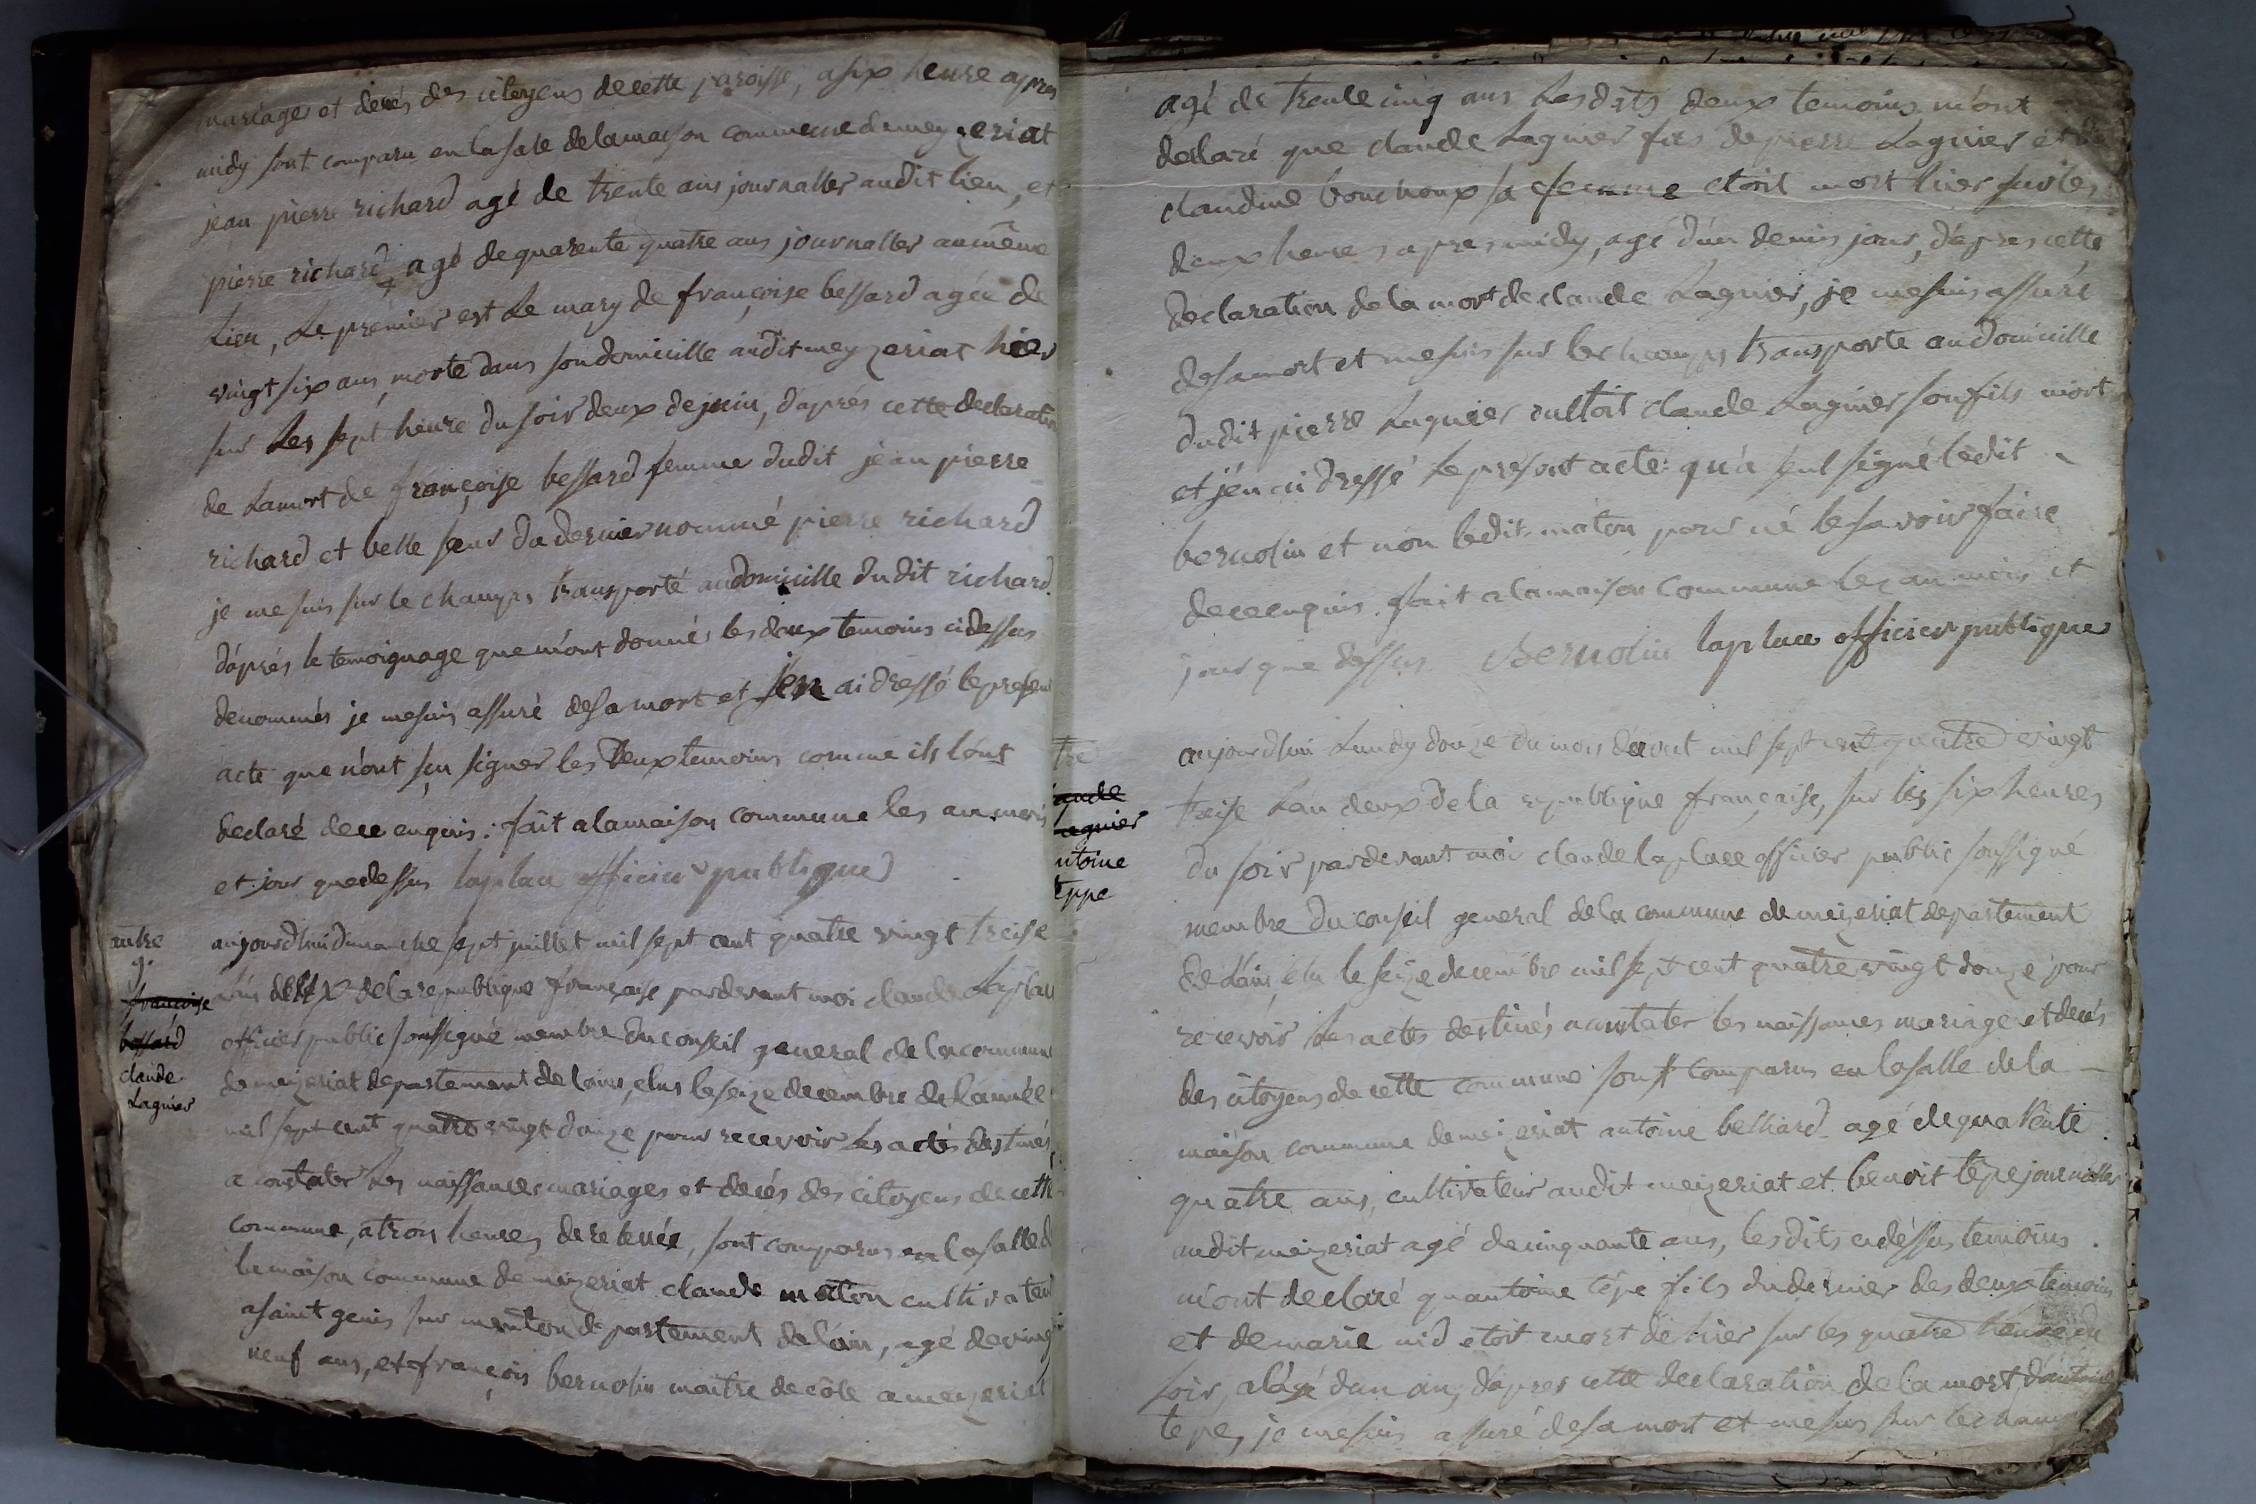 mariages et decés des citoyens decette paroisse, a six heure apres
midy sont comparu en la sale delamaison commune demeyzeriat
jean pierre richard agé de trente ans journallier audit lieu, et
pierre richard, agé dequarente quatre ans journallier aumême
Lieu, Le premier est Le mary de françoise bessard agée de
vingt six ans, morte dans son domicille audit meyzeriat hier
sur Les sept heure du soir deux de juin, d'aprés cette declaration
de Lamort de françoise bessard femme dudit jean pierre
richard et belle sœur du dernier nommé pierre richard
je me suis sur le champs transporté audomicille dudit richard
d'áprés le temoignage que m'ont donné les deux temoins cidessus
denommés je mesuis assuré desa mort et j'en ai dressé lepresent
acte que n'ont sçu signer les deux temoins comme ils l'ont
declaré de ce enquis. fait alamaison commune les an mois
et jour quedessus laplace officier publique
autre
9.
françoise
bessard
claude
Lagnier
aujourdhui dimanche sept juillet mil sept cent quatre vingt treise
deux delarepublique française pardevant moi claude Laplace
officier public soussigné membre du conseil general de la commune
demeizeriat departement de l'ain, elus le seize decembre de l'année
mil sept cent quatre vingt douze pour recevoir Les actes destinés
a constater Les naissances mariages et decés des citoyens de cette
commune, a trois heures de relevée, sont comparus en la salle de
la maison commune demeizeriat claude maton cultivateur
a saint genis sur menton departement de l'ain, agé de vingt
neuf ans, et françois bernolin maitre decôle a meyzeriat
agé de trente cinq ans Les dits deux temoins m'ont
declaré que claude Lagnier fils de pierre Lagnier et de
claudine bouchoux sa femme etoit mort hier sur les
deux heures apres midy, agé d'un demis jour, d'apres cette
declaration de la mort de claude Lagnier, je mesuis assuré
desamort et mesuis sur le champs transporte audomicille
dudit pierre Lagnier ou etoit claude Lagnier son fils mort
et j'en ai dressé le present acte qu'a seul signé ledit
bernolin et non ledit maton pour né le savoir faire
dece enquis. fait a lamaison commune les an mois et
jour que dessus Bernolin laplace officier publique
tre
aude
agnier
ntoine
teppe
aujourdhui Lundy douze du mois daout mil sept cent quatre vingt
treise L'an deux de la republique française, sur les six heures
du soir pardevant moi claude laplace officier public soussigné
membre du conseil general de la commune de meizeriat departement
de l'ain, elu le seize decembre mil sept cent quatre vingt douze pour
recevoir Les actes destinés a constater les naissances mariage et decés
des citoyens de cette commune sont comparus en la salle de la
maison commune demeizeriat antoine belliard agé de quarente
quatre ans, cultivateur audit meizeriat et benoit tépe journallier
audit meizeriat agé decinquante ans, lesdits cidessus temoins
m'ont declaré quantoine tépe fils du dernier des deux temoins
et de marie nid etoit mort de hier sur les quatre heure du
soir, a l'agé dun an, d'apres cette declaration de la mort d'antoine
tepe, je mesuis assuré desa mort et mesuis sur le champ